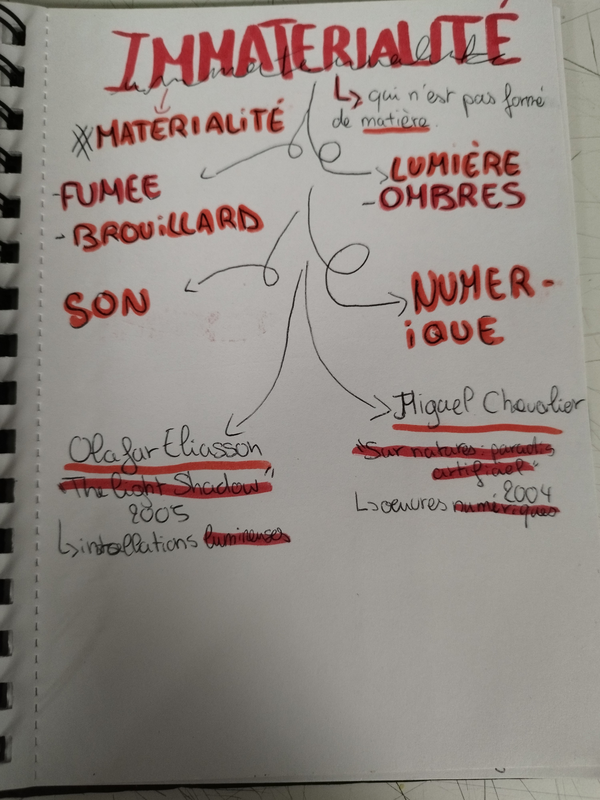 IMMATERIALITÉ
immaterialité
↳ qui n'est pas formé
de matière.
MATERIALITÉ
-FUMEE
- BROUILLARD
LUMIÈRE
-OMBRES
SON
NUMER-
iQUE
Olafur Eliasson
"The light Shadow"
2005
↳ installations lumineuses
Miguel Chevalier
"Sur natures paradis
artificiel"
2004
↳ oeuvres numériques